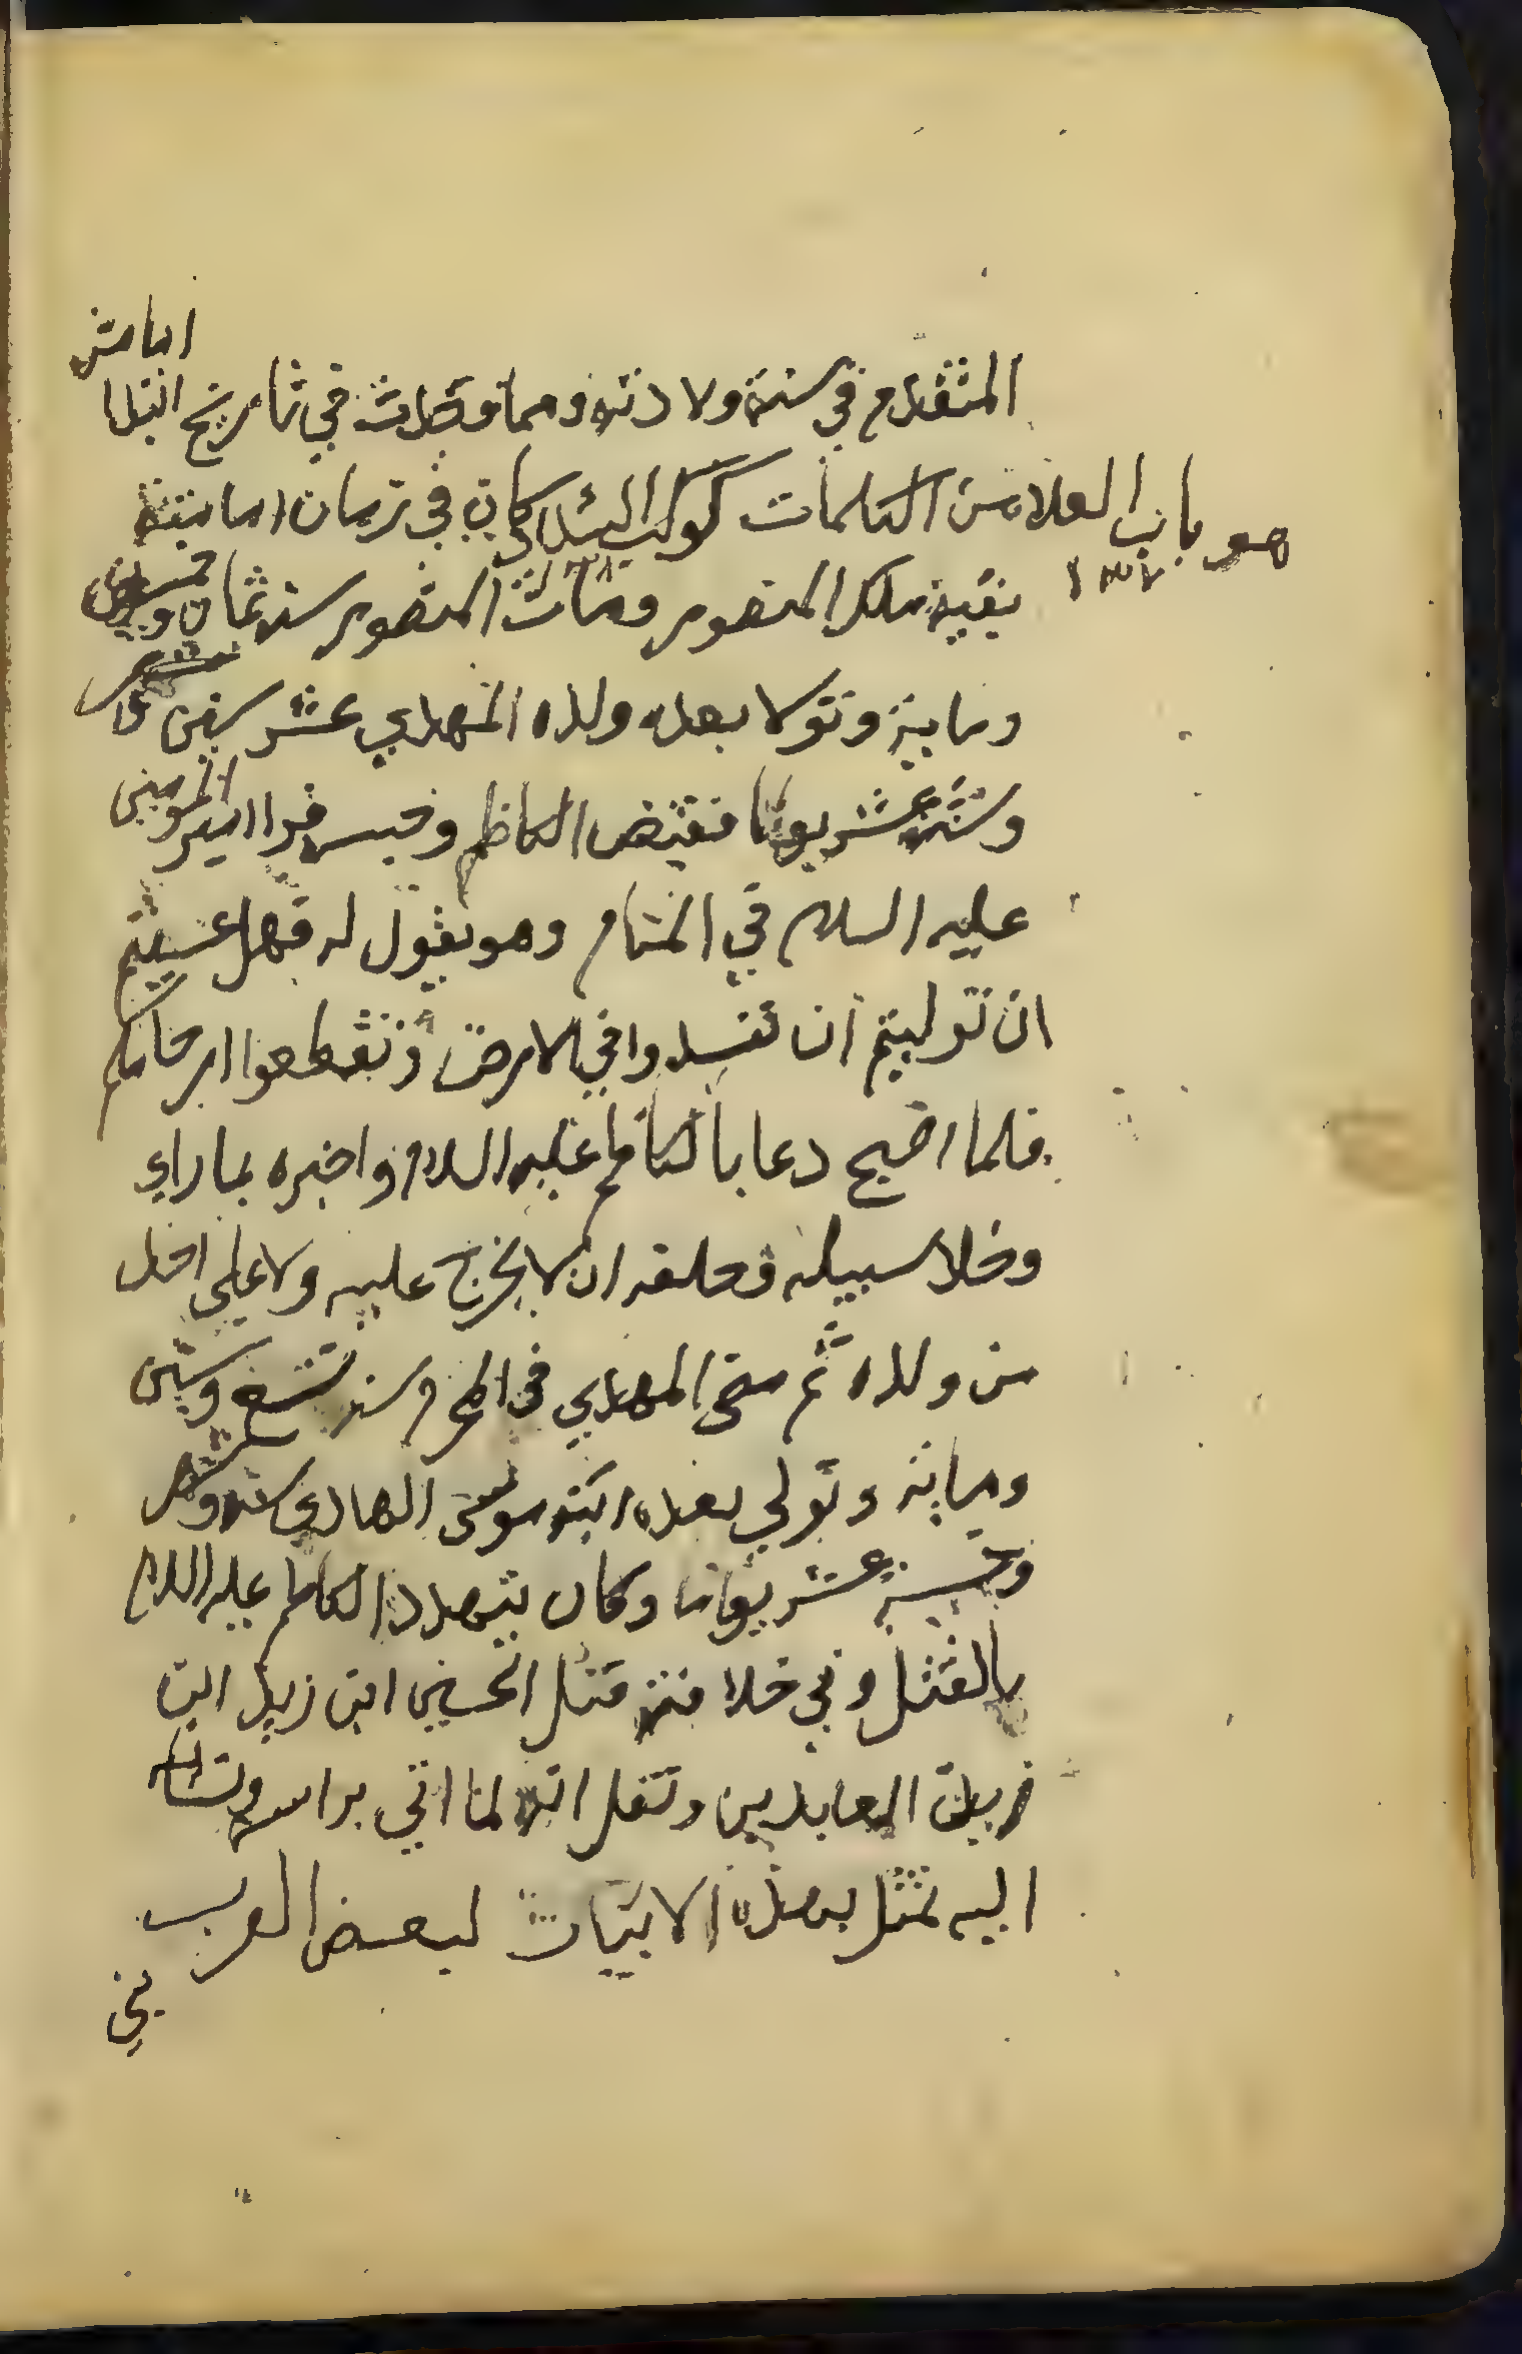 المتقدم في سنة ولادته ومما وجدت في تاريخ ابتدا امامته
هو باب العلا من الكلمات كوكب البلاد كان في زمان امامته
١٣٧
بقية ملك المنصور ومات المنصور سنة ثمان وخمسين
وماية وتولا بعده ولده المهدي عشر سنين
وستة عشر يوما فقبض الكاظم وحبسه فرا امير المومنين
عليه السلام في المنام وهو يقول له فهل عسيتم
ان توليتم ان تفسدوا في الارض وتقطعوا ارحامكم
فلما اصبح دعا بالكاظم عليه السلام واخبره بما راي
وخلا سبيله فحلفه ان لا يخرج عليه ولا علي احد
من ولده ثم مضى المهدي في المحرم سنة تسع وستين
وماية وتولي بعده ابنه موسى الهادي سنة وشهر
وخمسة عشر يوما وكان يتهدد الكاظم عليه السلام
بالقتل وفي خلافته قتل الحسين ابن زيد ابن
زين العابدين ونقل انه لما اتي براسه
اليه تمثل بهذه الابيات لبعض العرب
بني